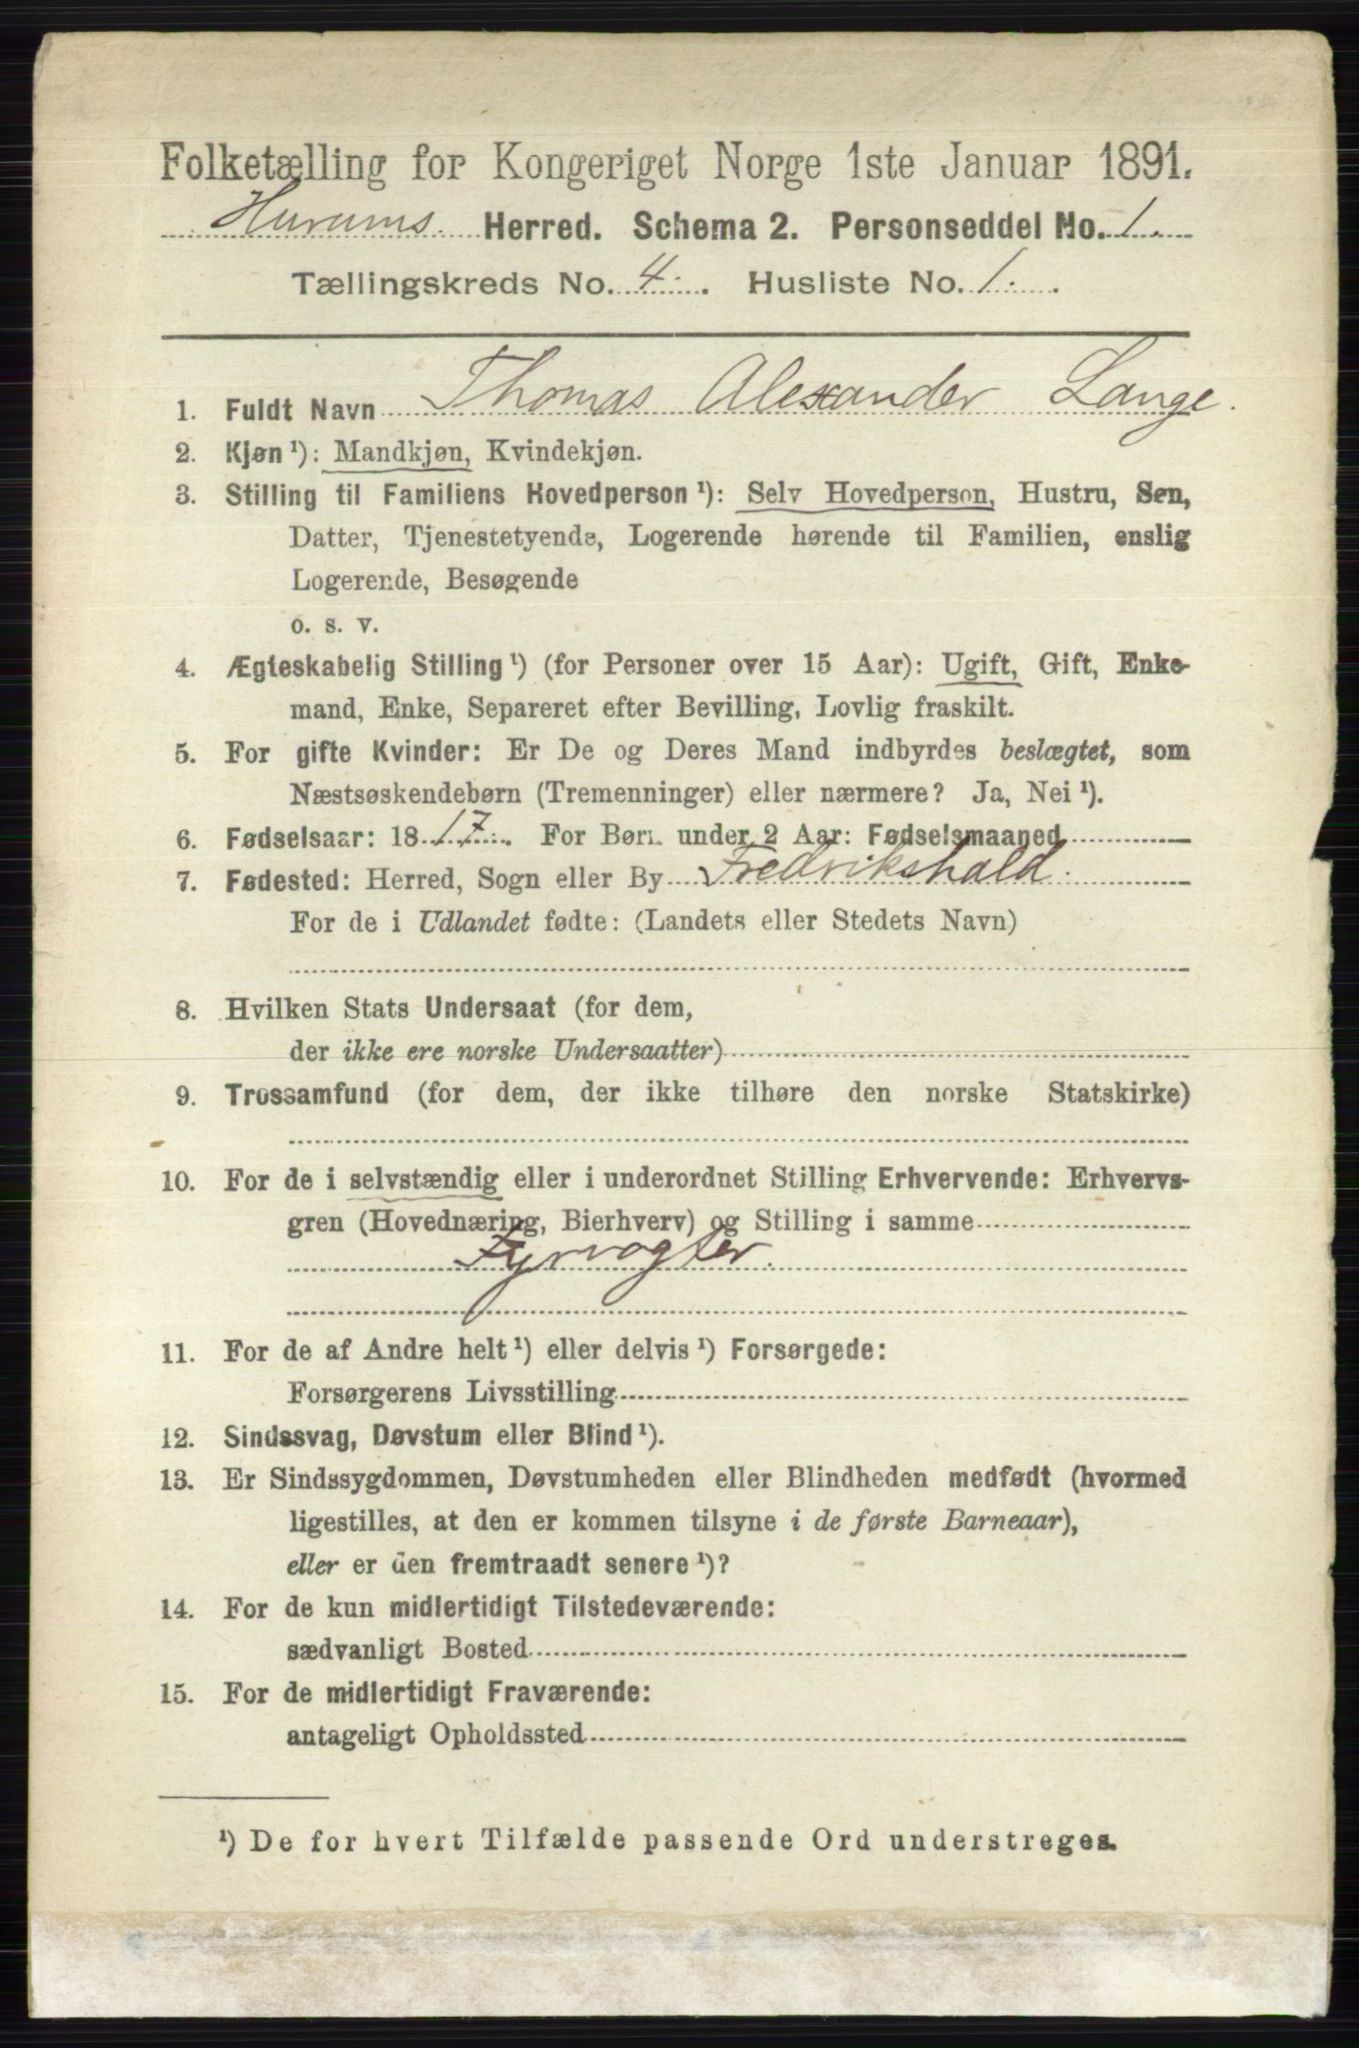 Folketælling for Kongeriget Norge 1ste Januar 1891.
Hurums Herred. Schema 2. Personseddel No. 1.
Tællingskreds No. 4. Husliste No. 1.
1. Fuldt Navn Thomas Alexander Lange.
2. Kjøn¹): Mandkjøn, Kvindekjøn.
3. Stilling til Familiens Hovedperson¹): Selv Hovedperson, Hustru, Søn,
Datter, Tjenestetyende, Logerende hørende til Familien, enslig
Logerende, Besøgende
o. s. v.
4. Ægteskabelig Stilling¹) (for Personer over 15 Aar): Ugift, Gift, Enke-
mand, Enke, Separeret efter Bevilling, Lovlig fraskilt.
5. For gifte Kvinder: Er De og Deres Mand indbyrdes beslægtet, som
Næstsøskendebørn (Tremenninger) eller nærmere? Ja, Nei¹).
6. Fødselsaar: 1817. For Børn under 2 Aar: Fødselsmaaned
7. Fødested: Herred, Sogn eller By Fredrikshald.
For de i Udlandet fødte: (Landets eller Stedets Navn)
8. Hvilken Stats Undersaat (for dem,
der ikke ere norske Undersaatter)
9. Trossamfund (for dem, der ikke tilhøre den norske Statskirke)
10. For de i selvstændig eller i underordnet Stilling Erhvervende: Erhvervs-
gren (Hovednæring, Bierhverv) og Stilling i samme
Fyrvogter.
11. For de af Andre helt¹) eller delvis¹) Forsørgede:
Forsørgerens Livsstilling
12. Sindssvag, Døvstum eller Blind¹).
13. Er Sindssygdommen, Døvstumheden eller Blindheden medfødt (hvormed
ligestilles, at den er kommen tilsyne i de første Barneaar),
eller er den fremtraadt senere¹)?
14. For de kun midlertidigt Tilstedeværende:
sædvanligt Bosted
15. For de midlertidigt Fraværende:
antageligt Opholdssted
¹) De for hvert Tilfælde passende Ord understreges.